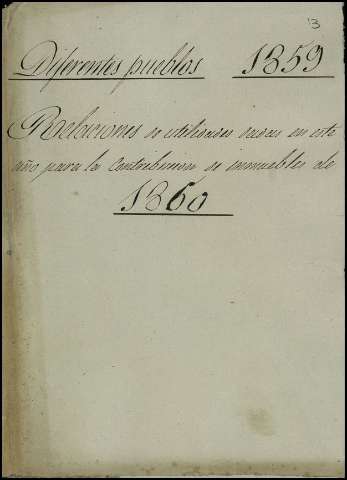 13
Diferentes pueblos 1859
Relaciones de utilidades dadas en este
año para la Contribucion de inmuebles de
1860